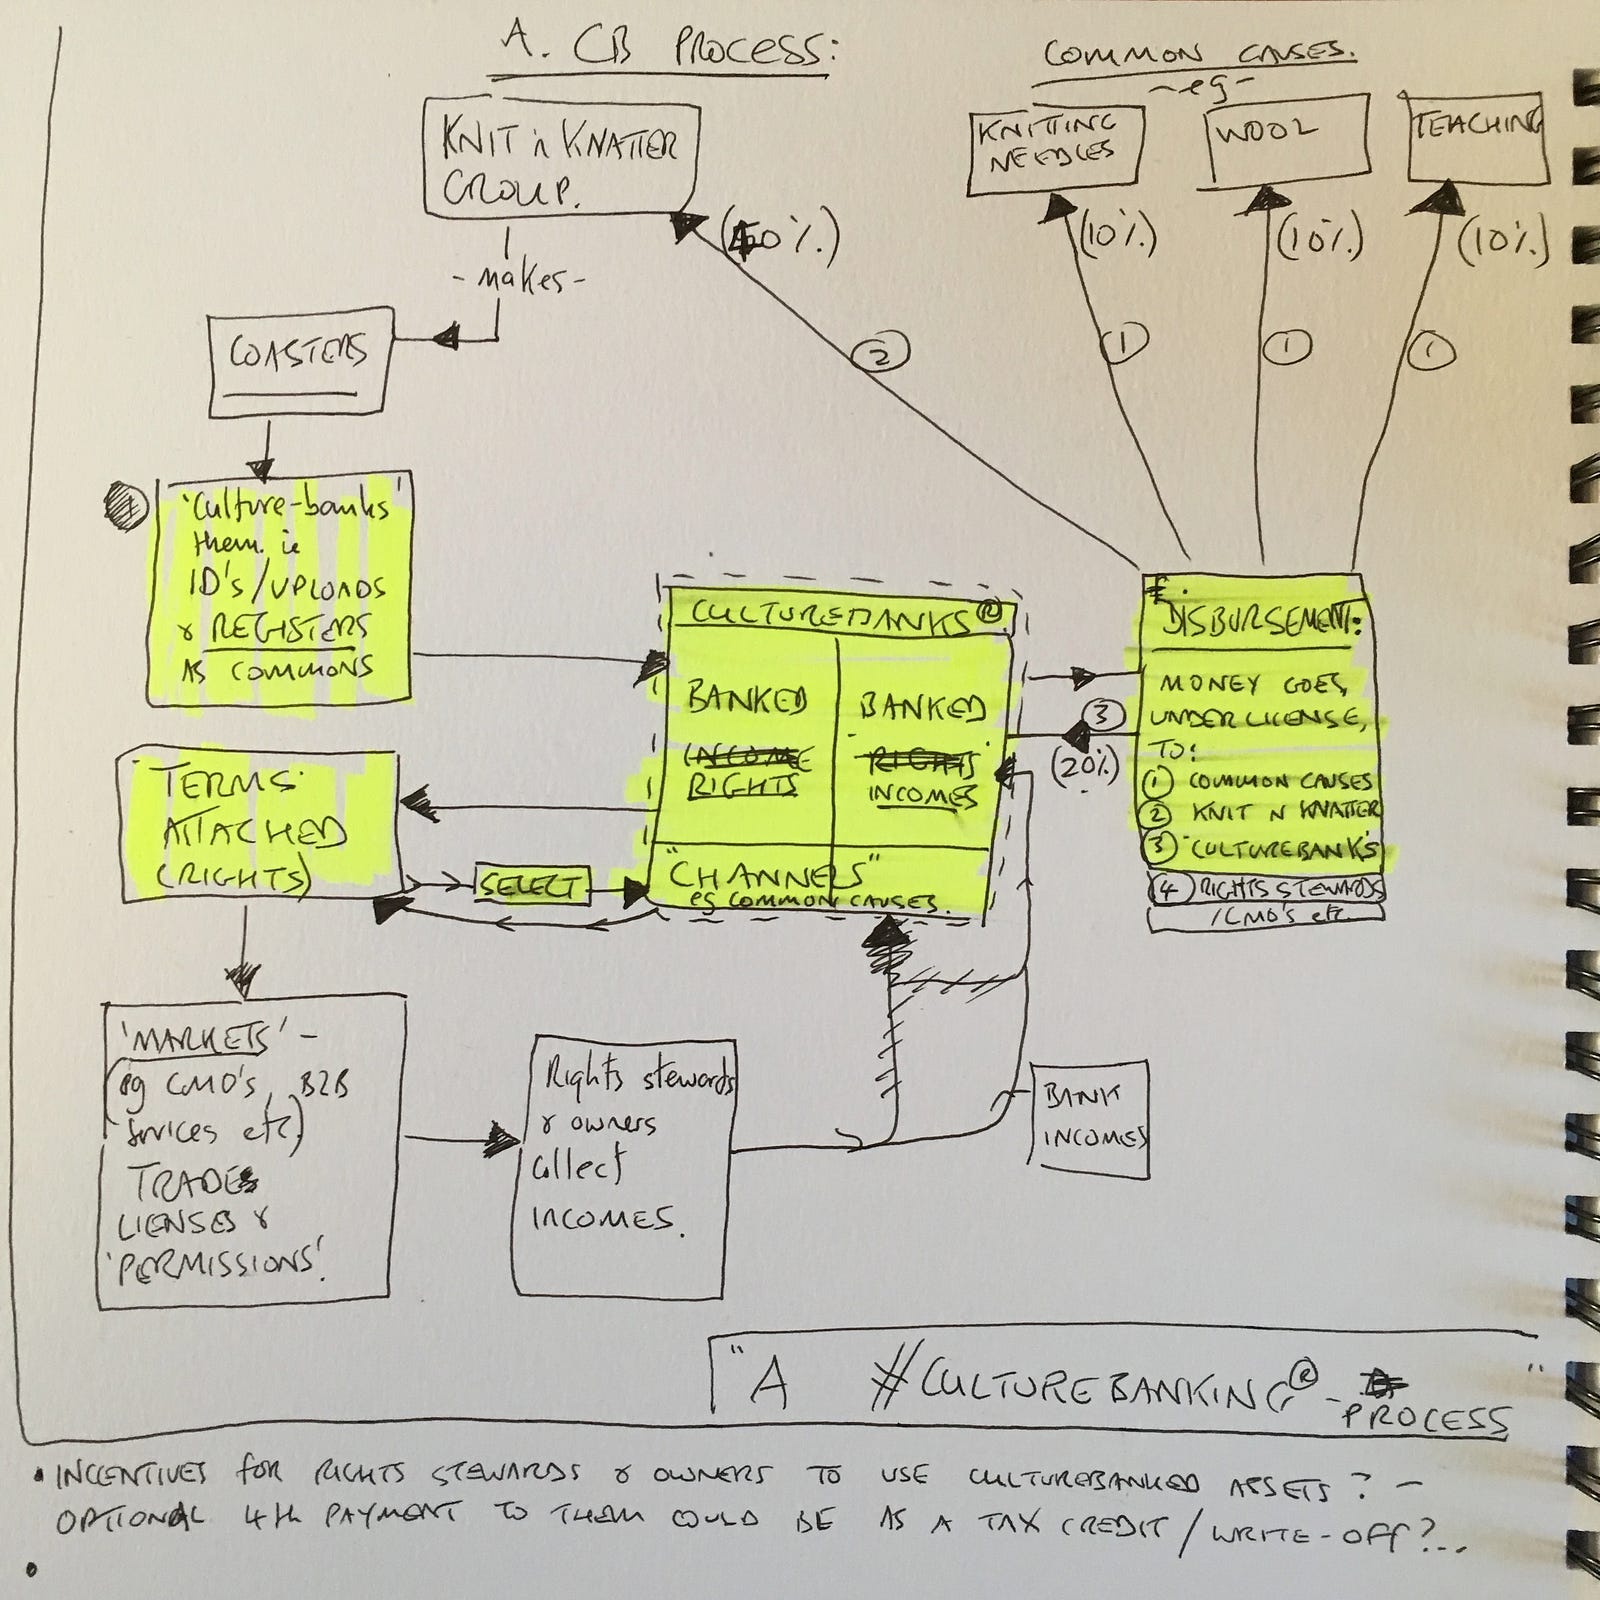 A. CB PROCESS:
COMMON CAUSES.
-eg-
KNIT n KNATTER
GROUP.
KNITTING
NEEDLES
WOOL
TEACHING
(10%)
(10%)
(10%)
-makes-
COASTERS
2
1
1
1
'Culture-banks'
them. ie
ID's/UPLOADS
& REGISTERS
AS COMMONS
CULTUREBANKS®
BANKED
INCOME
RIGHTS
BANKED
RIGHTS
INCOMES
"CHANNELS"
eg COMMON CAUSES.
3
(20%)
£.
DISBURSEMENT:
MONEY GOES,
UNDER LICENSE,
TO:
1 COMMON CAUSES
2 KNIT N KNATTER
3 CULTUREBANK'S
4 RIGHTS STEWARDS
/CMO'S etc
TERMS
ATTACHED
(RIGHTS)
SELECT
'MARKETS' -
(eg CMO'S, B2B
Services etc)
TRADES
LIENSES &
'PERMISSIONS'.
Rights stewards
& owners
collect
INCOMES.
BANK
INCOMES
"A #CULTUREBANKING® - PROCESS "
• INCENTIVES for RIGHTS STEWARDS & OWNERS TO USE CULTUREBANKED ASSETS? -
OPTIONAL 4th PAYMENT TO THEM COULD BE AS A TAX CREDIT / WRITE-OFF?...